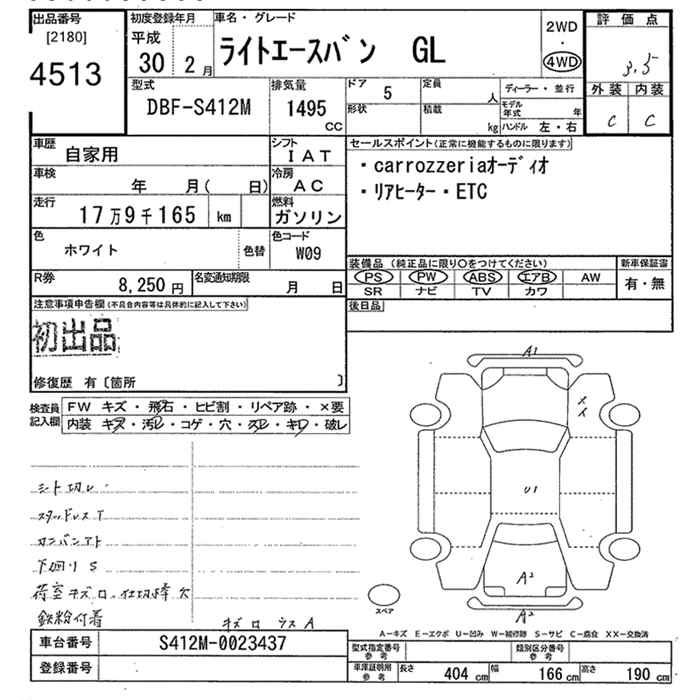 出品番号 初度登録年月 車名・グレード 2WD 評価点
[2180] 平成
4513 30 2月 ライトエースバン GL ・ 4WD 3.5
型式 排気量 ドア 5 定員 人 ディーラー・並行 外装 内装
DBF-S412M 1495 CC 形状 積載 kg モデル年式 年 C C
ハンドル 左・右
車歴 自家用 シフト IAT セールスポイント(正常に機能するものに限ります)
車検 年 月( 日) 冷房 AC ・carrozzeriaオーディオ
走行 17万9千165 km 燃料 ガソリン ・リアヒーター・ETC
色 ホワイト 色替 色コード W09
装備品(純正品に限り○をつけてください) 新車保証書
R券 8,250円 名変通知期限 月 日 PS PW ABS エアB AW 有・無
SR ナビ TV カワ
注意事項申告欄(不具合内容等は具体的に記入して下さい) 後日品
初出品
修復歴 有〔箇所 〕
検査員 FW キズ・飛石・ヒビ割・リペア跡・×要
記入欄 内装 キズ・汚レ・コゲ・穴・スレ・キレ・破レ
A1
U1
シート切レ
スタッドレスT
カンバンアト
下回りS
A2
鉄粉付着
スペア
A2
A－キズ E－エクボ U－凹み W－補修跡 S－サビ C－腐食 XX－交換済
車台番号 S412M-0023437 型式指定番号 参考 類別区分番号 参考
登録番号 車庫証明用 参考 長さ 404 cm 幅 166 cm 高さ 190 cm